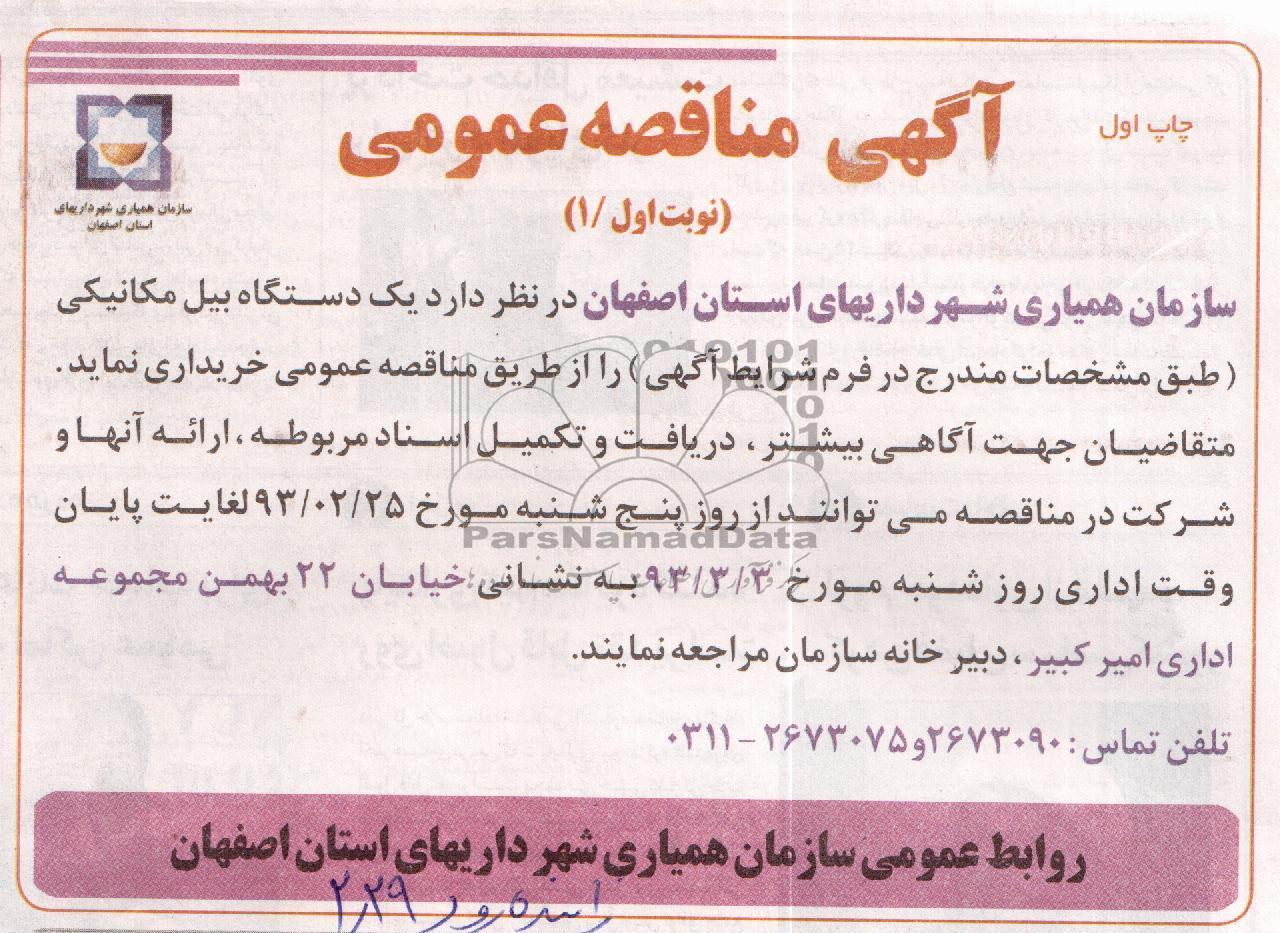 چاپ اول
آگهی مناقصه عمومی
(نوبت اول /۱)
سازمان همیاری شهرداریهای
استان اصفهان
سازمان همیاری شهرداریهای استان اصفهان در نظر دارد یک دستگاه بیل مکانیکی
(طبق مشخصات مندرج در فرم شرایط آگهی) را از طریق مناقصه عمومی خریداری نماید.
متقاضیان جهت آگاهی بیشتر، دریافت و تکمیل اسناد مربوطه، ارائه آنها و
شرکت در مناقصه می توانند از روز پنج شنبه مورخ ۹۳/۰۲/۲۵ لغایت پایان
وقت اداری روز شنبه مورخ ۹۳/۳/۳ به نشانی: خیابان ۲۲ بهمن مجموعه
اداری امیر کبیر، دبیر خانه سازمان مراجعه نمایند.
تلفن تماس: ۲۶۷۳۰۹۰و۲۶۷۳۰۷۵ - ۰۳۱۱
روابط عمومی سازمان همیاری شهرداریهای استان اصفهان
زاینده رود ۲،۲۹
ParsNamadData